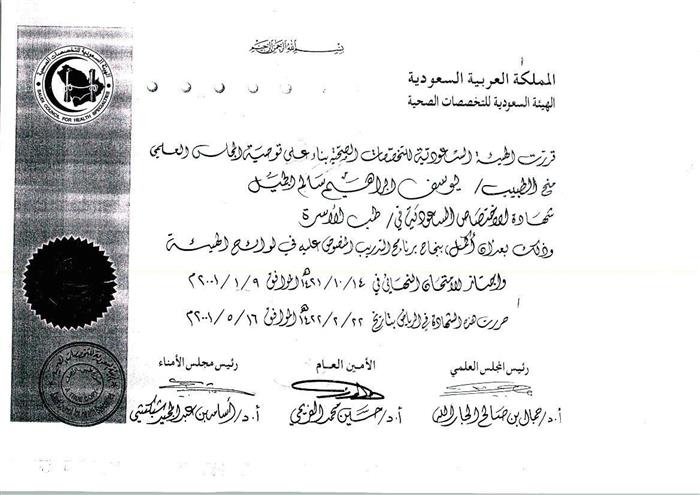 بسم الله الرحمن الرحيم
المملكة العربية السعودية
الهيئة السعودية للتخصصات الصحية
الهيئة السعودية للتخصصات الصحية
SAUDI COUNCIL FOR HEALTH SPECIALTIES
قررت الهيئة السعودية للتخصصات الصحية بناء على توصية المجلس العلمي
منح الطبيب / يوسف ابراهيم سالم
شهادة الاختصاص السعودية في / طب الأسرة
وذلك بعد أن أكمل بنجاح برنامج التدريب المنصوص عليه في لوائح الهيئة
واجتاز الامتحان النهائي في ١٤٢١/١٠/١٤هـ الموافق ٢٠٠١/١/٩م
حررت هذه الشهادة في الرياض بتاريخ ١٤٢٢/٢/٢٢هـ الموافق ٢٠٠١/٥/١٦م
رئيس المجلس العلمي
الأمين العام
رئيس مجلس الأمناء
أ.د/ جمال بن صالح الجارالله
أ.د/ حسين محمد الفريحي
أ.د/ أسامة بن عبد المجيد شبكشي